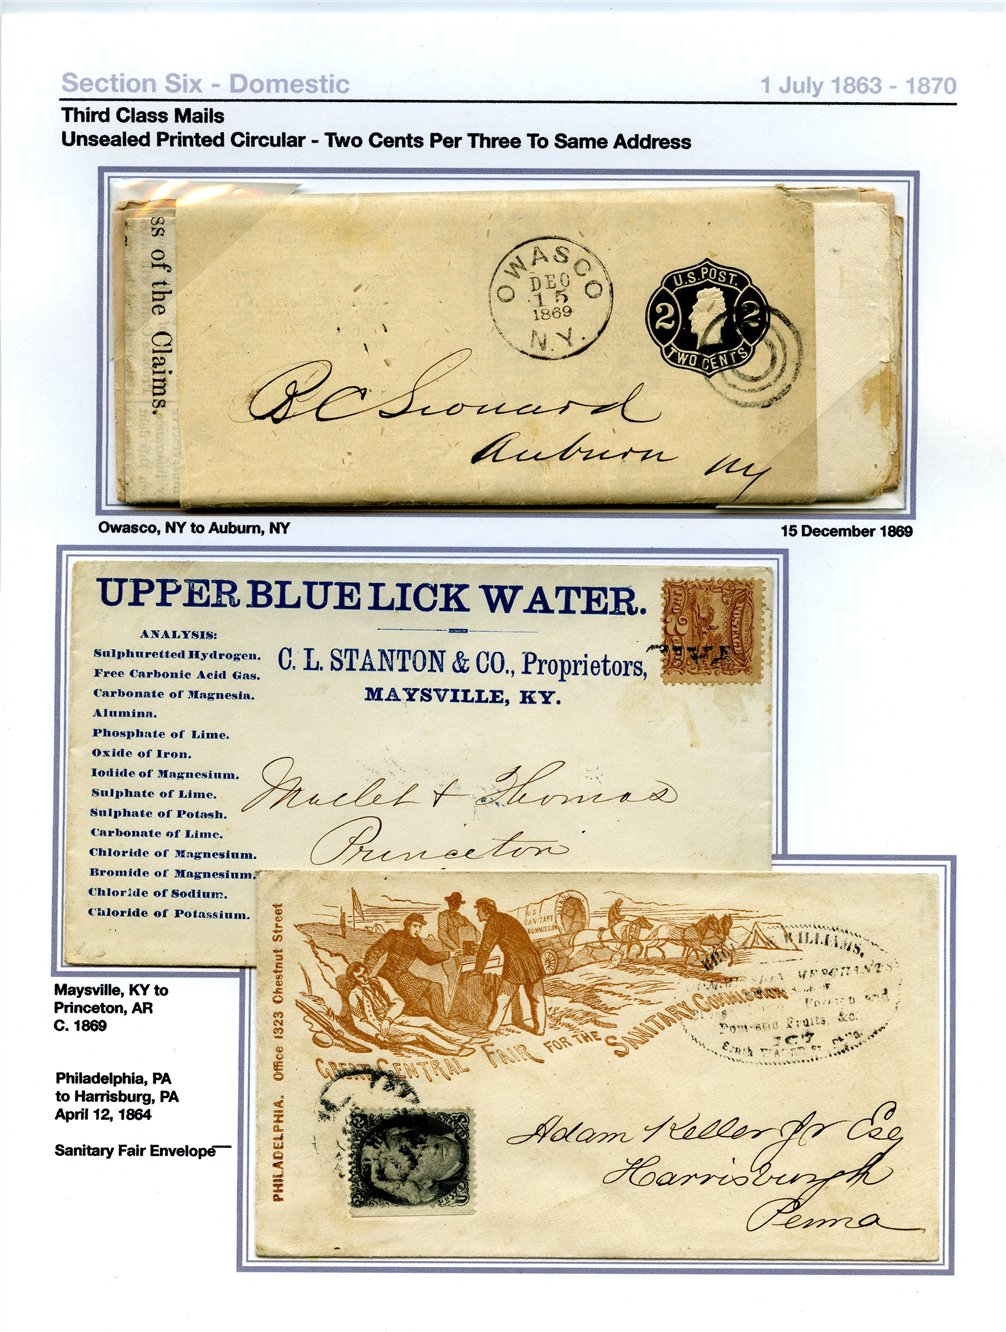 Section Six - Domestic 1 July 1863 - 1870
Third Class Mails
Unsealed Printed Circular - Two Cents Per Three To Same Address
ss of the Claims.
OWASCO
DEC
15
1869
N.Y.
U.S. POST.
2 2
TWO CENTS
B C Leonard
Auburn NY
Owasco, NY to Auburn, NY 15 December 1869
UPPER BLUE LICK WATER.
C. L. STANTON & CO., Proprietors,
MAYSVILLE, KY.
ANALYSIS:
Sulphuretted Hydrogen.
Free Carbonic Acid Gas.
Carbonate of Magnesia.
Alumina.
Phosphate of Lime.
Oxide of Iron.
Iodide of Magnesium.
Sulphate of Lime.
Sulphate of Potash.
Carbonate of Lime.
Chloride of Magnesium.
Bromide of Magnesium.
Chloride of Sodium.
Chloride of Potassium.
& Thomas
Princeton
Maysville, KY to
Princeton, AR
C. 1869
Philadelphia, PA
to Harrisburg, PA
April 12, 1864
Sanitary Fair Envelope
PHILADELPHIA. Office 1323 Chestnut Street
U S
SANITARY
COMMISSION
GREAT CENTRAL FAIR FOR THE SANITARY COMMISSION
WILLIAMS,
MERCHANTS
Foreign and
Domestic Fruits, &c.
Adam Keller Jr Esq
Harrisburgh
Penna